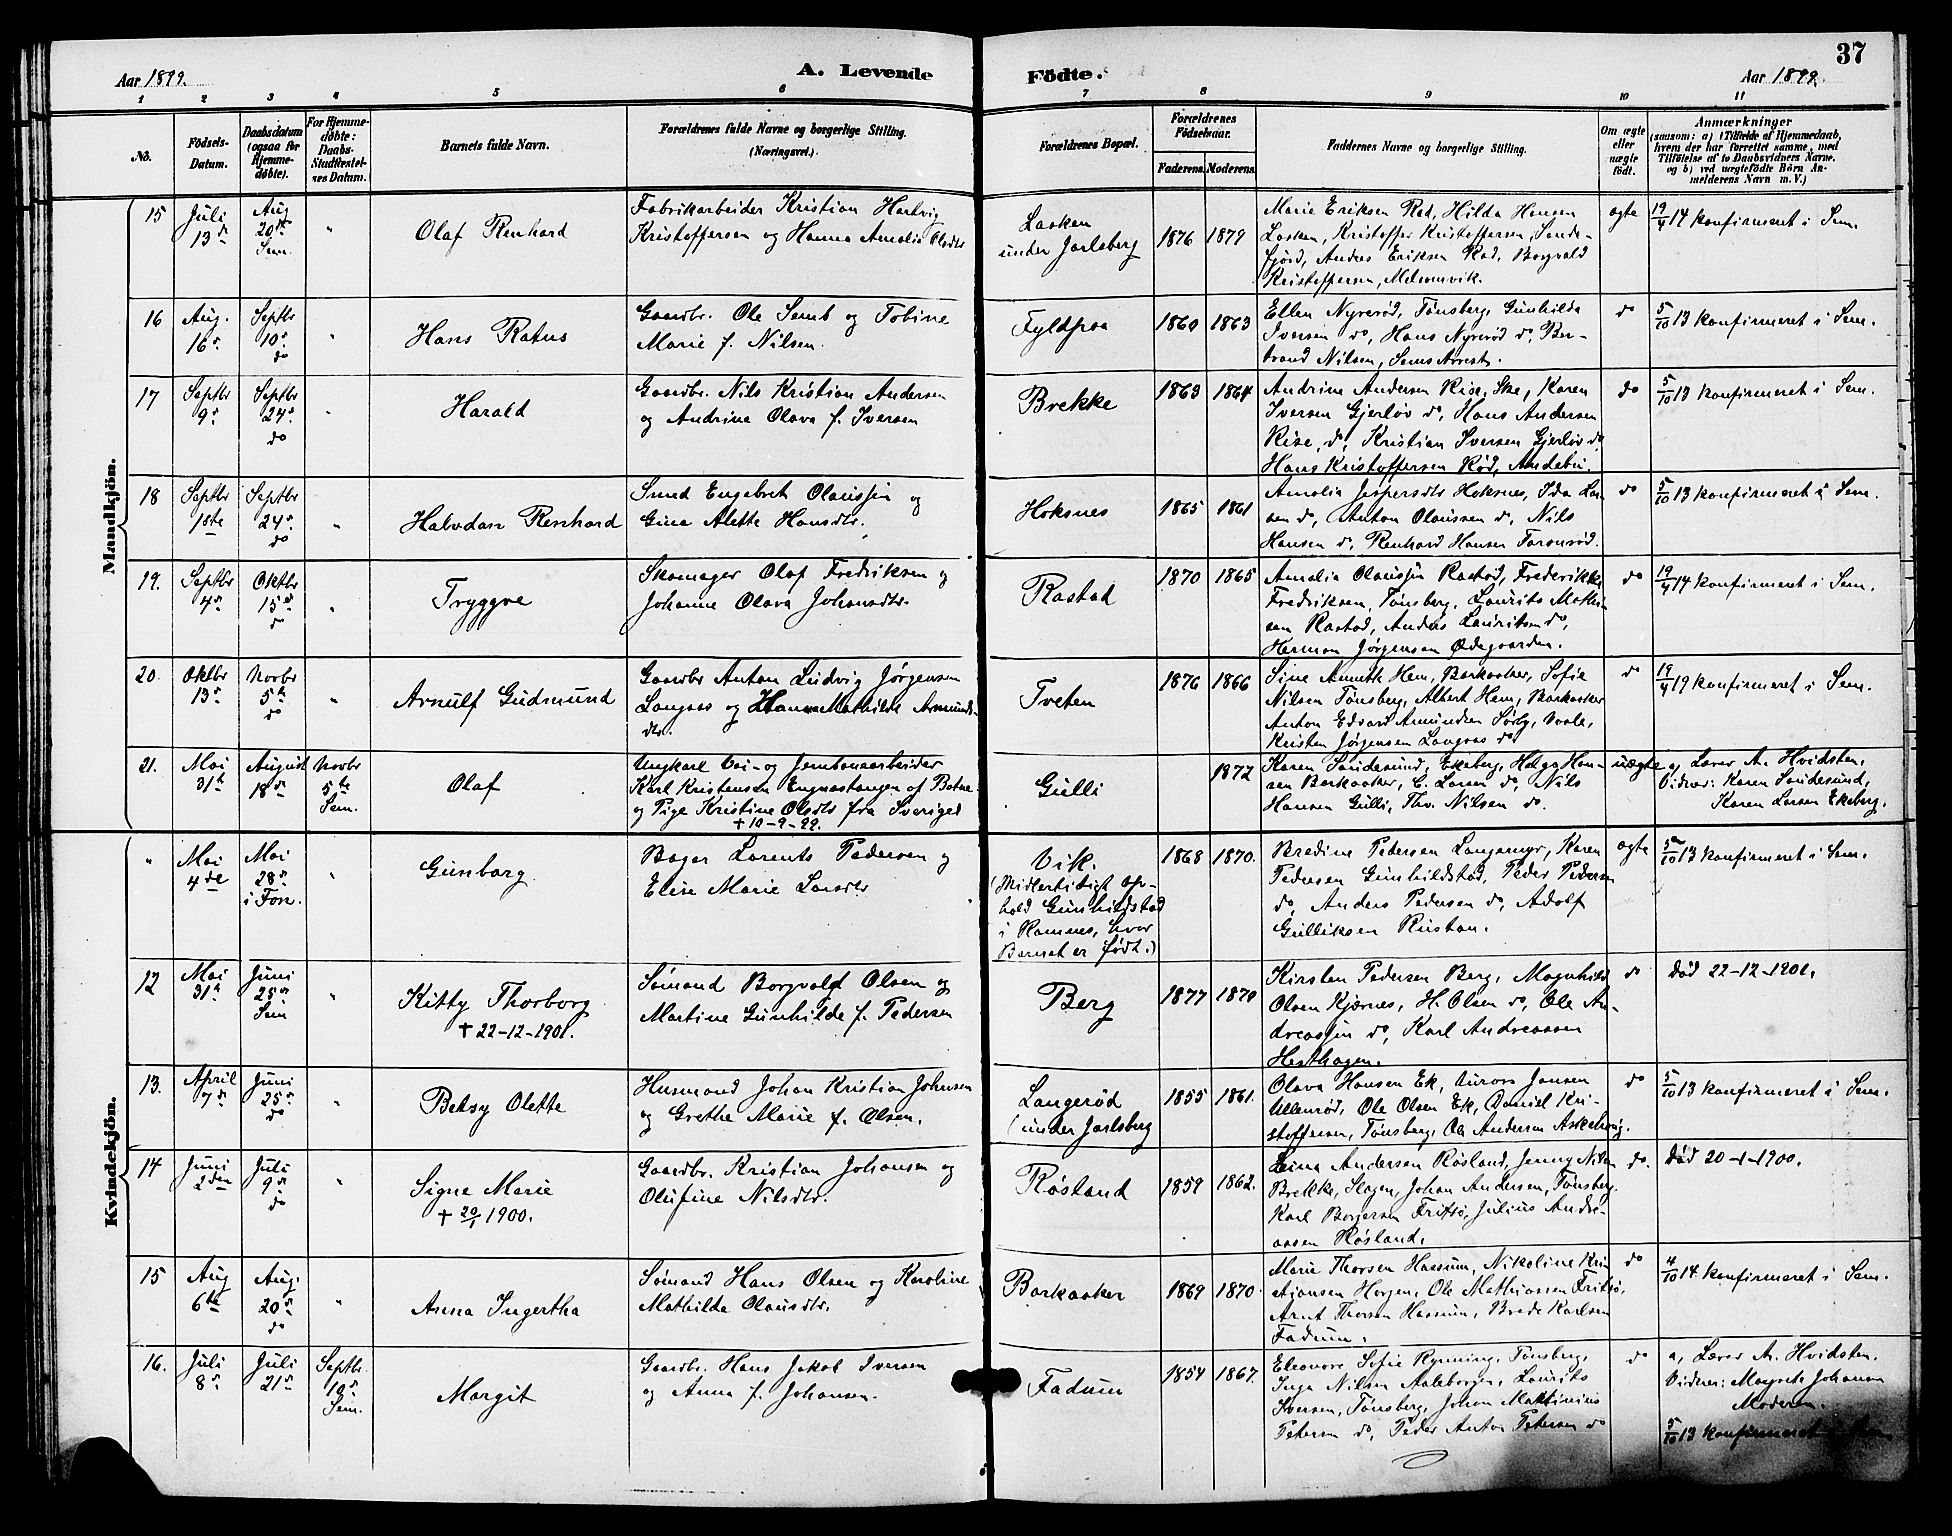 37
Aar 1899.
A. Levende
Födte.
Aar 1899.
1 2 3 4 5 6 7 8 9 10 11
No.
Födsels-Datum.
Daabsdatum (ogsaa for Hjemme-döbte).
For Hjemme-döbte: Daabs-Stadfæstel-ses Datum.
Barnets fulde Navn.
Forældrenes fulde Navne og borgerlige Stilling.
(Næringsvei.)
Forældrenes Bopæl.
Forældrenes Födselsaar.
Faderens. Moderens.
Faddernes Navne og borgerlige Stilling.
Om ægte eller uægte födt.
Anmærkninger
(saasom: a) i Tilfælde af Hjemmedaab,
hvem der har forrettet samme, med
Tilföielse af to Daabsvidners Navne,
og b) ved uægtefödte Börn An-
melderens Navn m. V.)
Mandkjön.
15
Juli 13de
Aug 20de Sem.
"
Olaf Renhard
Fabrikarbeider Kristian Hartvig
Kristoffersen og Hanna Amalia Olsdtr
Lasken
under Jarlsberg
1876 1879
Marie Eriksen Rød, Hilda Hansen
Lasken, Kristoffer Kristoffersen, Sande-
fjord, Andres Eriksen Rød, Borgvald
Kristoffersen, Melsomvik.
ægte
19/4 14 konfirmeret i Sem.
16
Aug. 16de
Septbr 10de do
"
Hans Ratus
Gaardbr. Ole Semb og Tobine
Marie f. Nilsen.
Fyldpaa
1860 1863
Ellen Nyrerød, Tønsberg, Gunhilda
Iversen do, Hans Nyrerød do, Ber-
trand Nilsen, Sems Arrest.
do
5/10 13 konfirmeret i Sem.
17
Septbr 9de
Septbr 24de do
"
Harald
Gaardbr. Nils Kristian Andersen
og Andrine Olava f. Iversen
Brekke
1863 1864
Andrine Andersen Rise, Ske, Karen
Iversen Gjerløv do, Hans Andersen
Rise, do, Kristian Iversen Gjerløv do,
Hans Kristoffersen Rød, Andebu.
do
5/10 13 konfirmeret i Sem.
18
Septbr 1ste
Septbr 24de do
"
Halvdan Renhard
Smed Engebret Olaussen og
Gina Alette Hansdtr.
Hoksnes
1865 1861
Amalia Jespersdtr Hoksnes, Ida Lar-
sen do, Anton Olaussen do, Nils
Hansen do, Renhard Hansen
do
5/10 13 konfirmeret i Sem.
19.
Septbr 4de
Oktbr 15de do
"
Tryggve
Skomager Olaf Fredriksen og
Johanne Olava Johansdtr.
Rastad
1870 1865
Amalia Olaussen Rastad, Frederikke
Fredriksen, Tønsberg, Laurits Mathi-
sen Rastad, Anders Lauritsen do,
Herman Jørgensen Ødegaarden.
do
19/4 14 konfirmeret i Sem.
20.
Oktbr 13de
Novbr 5te do
"
Arnulf Gudmund
Gaardbr Anton Ludvig Jørgensen
Langaas og Hanna Mathilde Amunds-
dtr.
Tveten
1876 1866
Sine Annette Hem, Barkaaker, Sofie
Nilsen Tønsberg, Albert Hem, Barkaaker
Anton Edvard Amundsen Sørby, Vaale,
Kristen Jørgensen Langaas do
do
19/4 19 konfirmeret i Sem.
21.
Mai 31te
August 18de
Novbr 5te Sem.
Olaf
Ungkarl Vei- og Jernbanearbeider
Karl Kristensen Engnæstangen af Botne
og Pige Kristine Olsdtr fra Sverige
+ 10-9-99.
Gulli
1872
Karen Sandesund, Ekeberg, Helga Han-
sen Barkaaker, C. Larsen do, Nils
Hansen Gulli, Thv. Nilsen do.
uægte
a, Lærer A. Hvidsten.
Vidner: Karen Sandesund,
Karen Larsen Ekeberg.
Kvindekjön.
"
Mai 4de
Mai 28de i Fon.
"
Gunborg.
Bager Lorents Pedersen og
Elise Marie Larsdtr
Vik.
(Midlertidigt op-
hold Gunhildstad
i Ramnes, hvor
Barnet er født.)
1868 1870.
Bredine Pedersen Langmyr, Karen
Pedersen Gunhildstad, Peder Pedersen
do, Anders Pedersen do, Adolf
Gulliksen Rustan.
ægte
5/10 13 konfirmeret i Sem.
12
Mai 31te
Juni 25de Sem
"
Kitty Thorborg
+ 22-12-1901.
Sømand Borgvalf Olsen og
Martine Gunhilde f. Pedersen
Berg
1877 1870
Kirsten Pedersen Berg, Magnhild
Olsen Kjærnes, H. Olsen do, Ole An-
dreassen do, Karl Andreassen
Hesthagen.
do
død 22-12-1901.
13.
April 7de
Juni 25de do
"
Betsy Olette
Husmand Johan Kristian Johnsen
og Grethe Marie f. Olsen.
Langerød
(under Jarlsberg
1855 1861.
Olava Hansen Ek, Aurora Jansen
Ullenrød, Ole Olsen Ek, Daniel Kri-
stoffersen, Tønsberg, Ole Andersen Askehoug.
do
5/10 13 konfirmeret i Sem.
14
Juni 2den
Juli 9de do
"
Signe Marie
+ 20/1 1900.
Gaardbr. Kristian Johansen og
Olufine Nilsdtr.
Røsland
1859 1862.
Lina Andersen Røsland, Jenny Nilsen
Brekke, Slagen, Johan Andersen, Tønsberg.
Karl Borgersen Fritsø, Julius Andre-
assen Røsland.
do.
død 20-1-1900.
15
Aug 6te
Aug. 20de do
"
Anna Ingertha
Sømand Hans Olsen og Karoline
Mathilda Olausdtr.
Barkaaker
1869 1870
Marie Thorsen Hassum, Nikoline Kri-
stiansen Horgen, Ole Mathiassen Fritsø,
Arnt Thorsen Hassum, Brede Karlsen
Fadum.
do
4/10 14 konfirmeret i Sem.
16.
Juli 8de
Juli 21de
Septbr. 10de Sem.
Margit
Gaardbr. Hans Jakob Iversen
og Anna f. Johansen.
Fadum
1854 1867.
Eleonore Sofie Rynning, Tønsberg,
Inga Nilsen Aaleborgen, Laurits
Iversen, Tønsberg, Johan Martinius
Petersen do, Peder Anton Petersen do
do
a, Lærer A. Hvidsten.
Vidner: Margrete Johansen
Moderen.
5/10 13 konfirmeret i Sem.